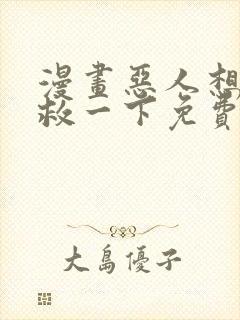 漫畫惡人想
救一下免費
大島優子